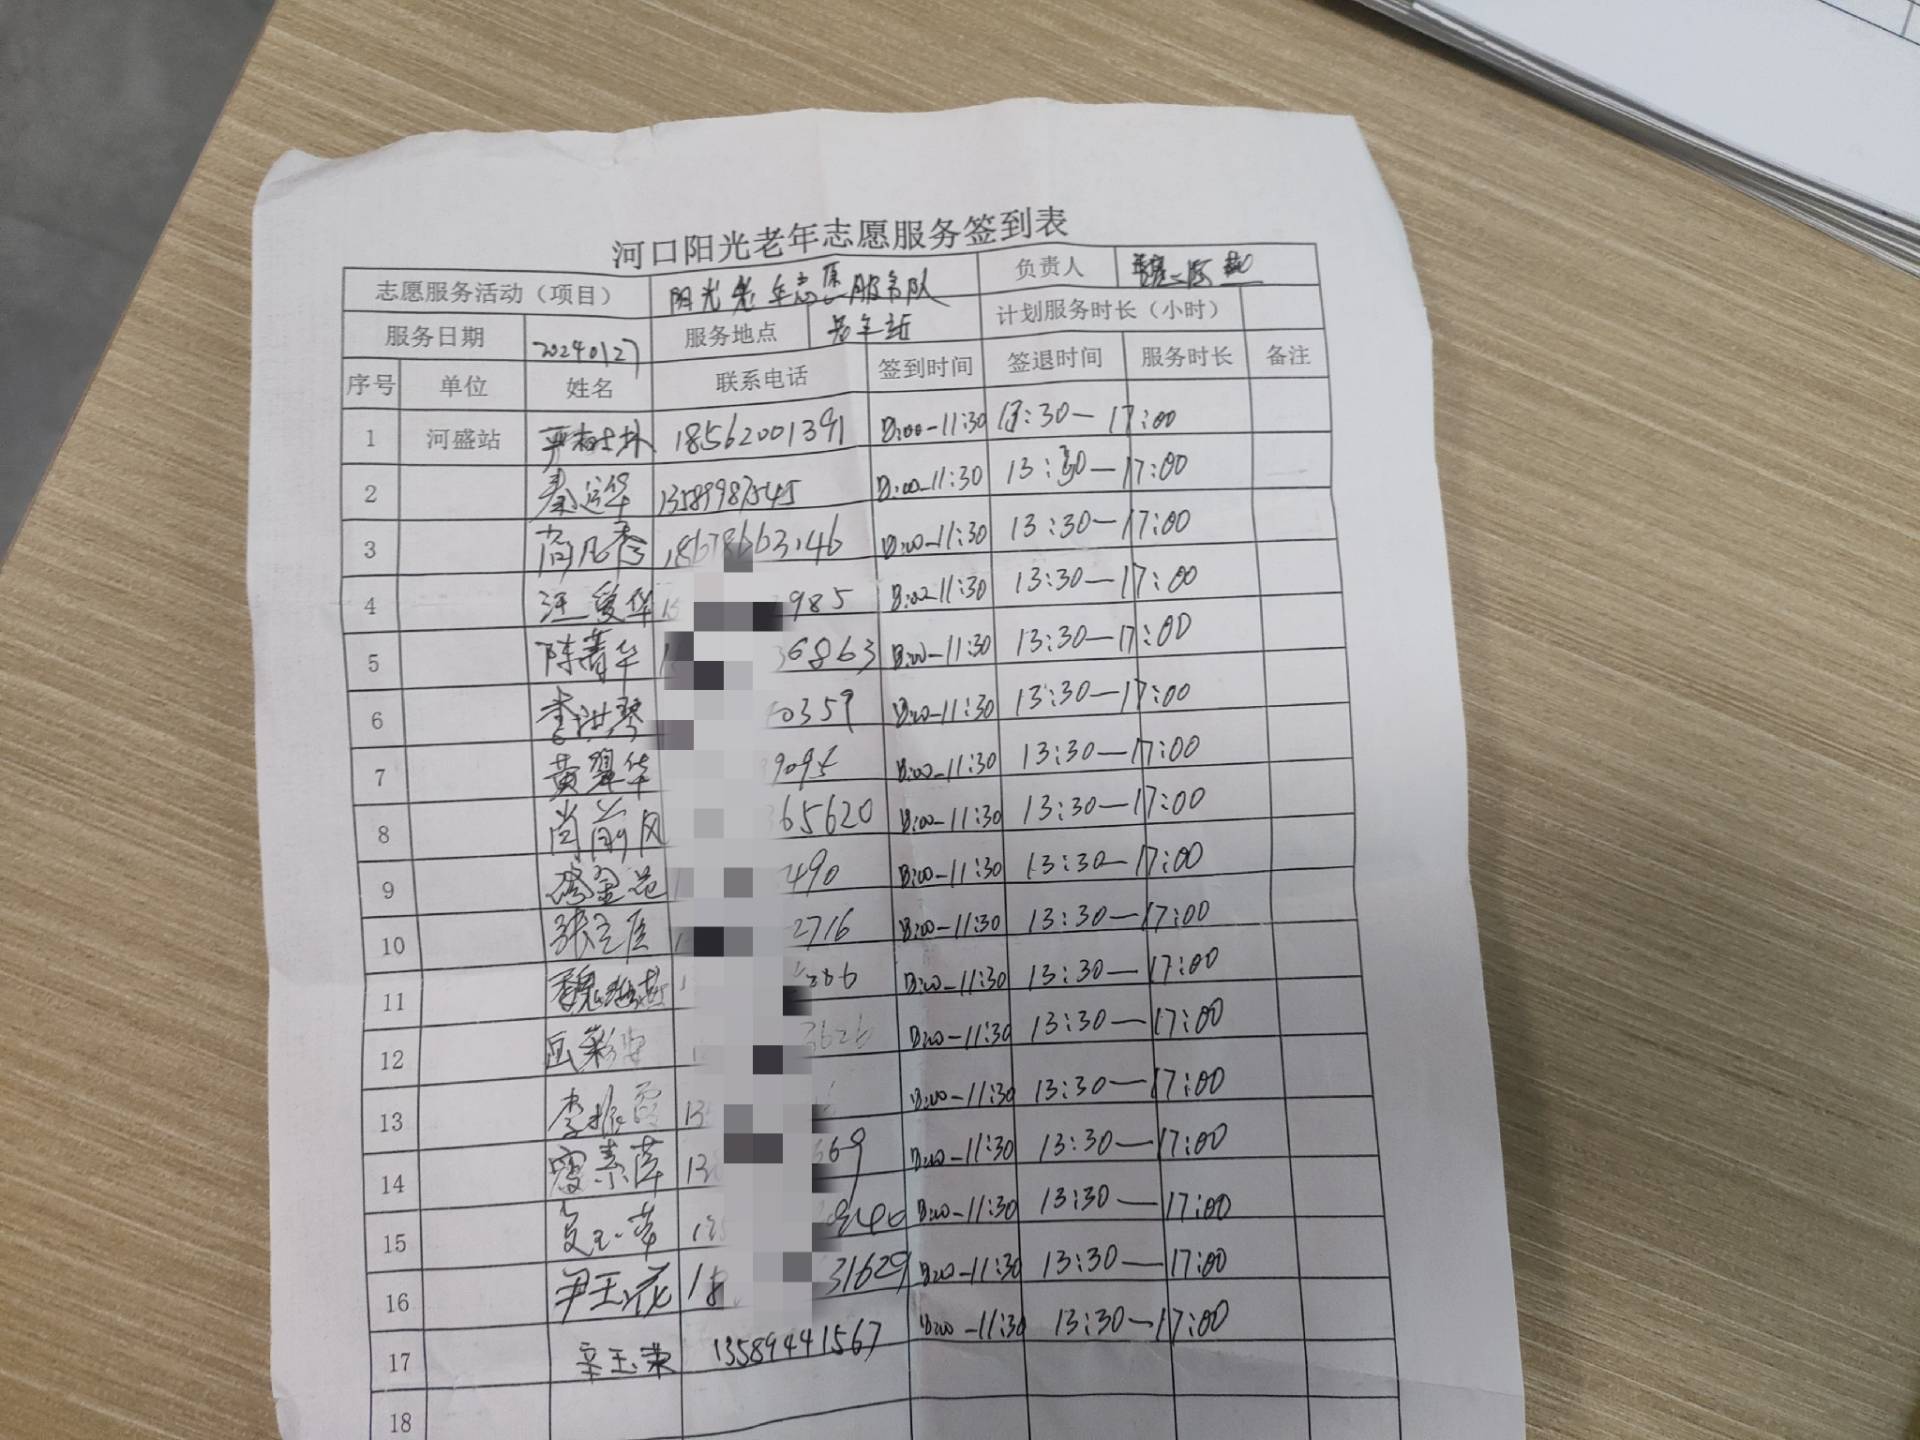 河口阳光老年志愿服务签到表
志愿服务活动（项目） 阳光老年志愿服务队 负责人
服务日期 20240127 服务地点 老年站 计划服务时长（小时）
序号 单位 姓名 联系电话 签到时间 签退时间 服务时长 备注
1 河盛站 18562001391 8:00-11:30 13:30-17:00
2 秦运华 13589987545 8:00-11:30 13:30-17:00
3 18678663146 8:00-11:30 13:30-17:00
4 汪爱华 985 8:00-11:30 13:30-17:00
5 陈菁华 36863 8:00-11:30 13:30-17:00
6 李洪琴 0359 8:00-11:30 13:30-17:00
7 黄翠华 9095 8:00-11:30 13:30-17:00
8 365620 8:00-11:30 13:30-17:00
9 490 8:00-11:30 13:30-17:00
10 2716 8:00-11:30 13:30-17:00
11 8:00-11:30 13:30-17:00
12 3626 8:00-11:30 13:30-17:00
13 李振霞 13 8:00-11:30 13:30-17:00
14 669 8:00-11:30 13:30-17:00
15 8:00-11:30 13:30-17:00
16 尹玉花 31629 8:00-11:30 13:30-17:00
17 辛玉荣 13589441567 8:00-11:30 13:30-17:00
18